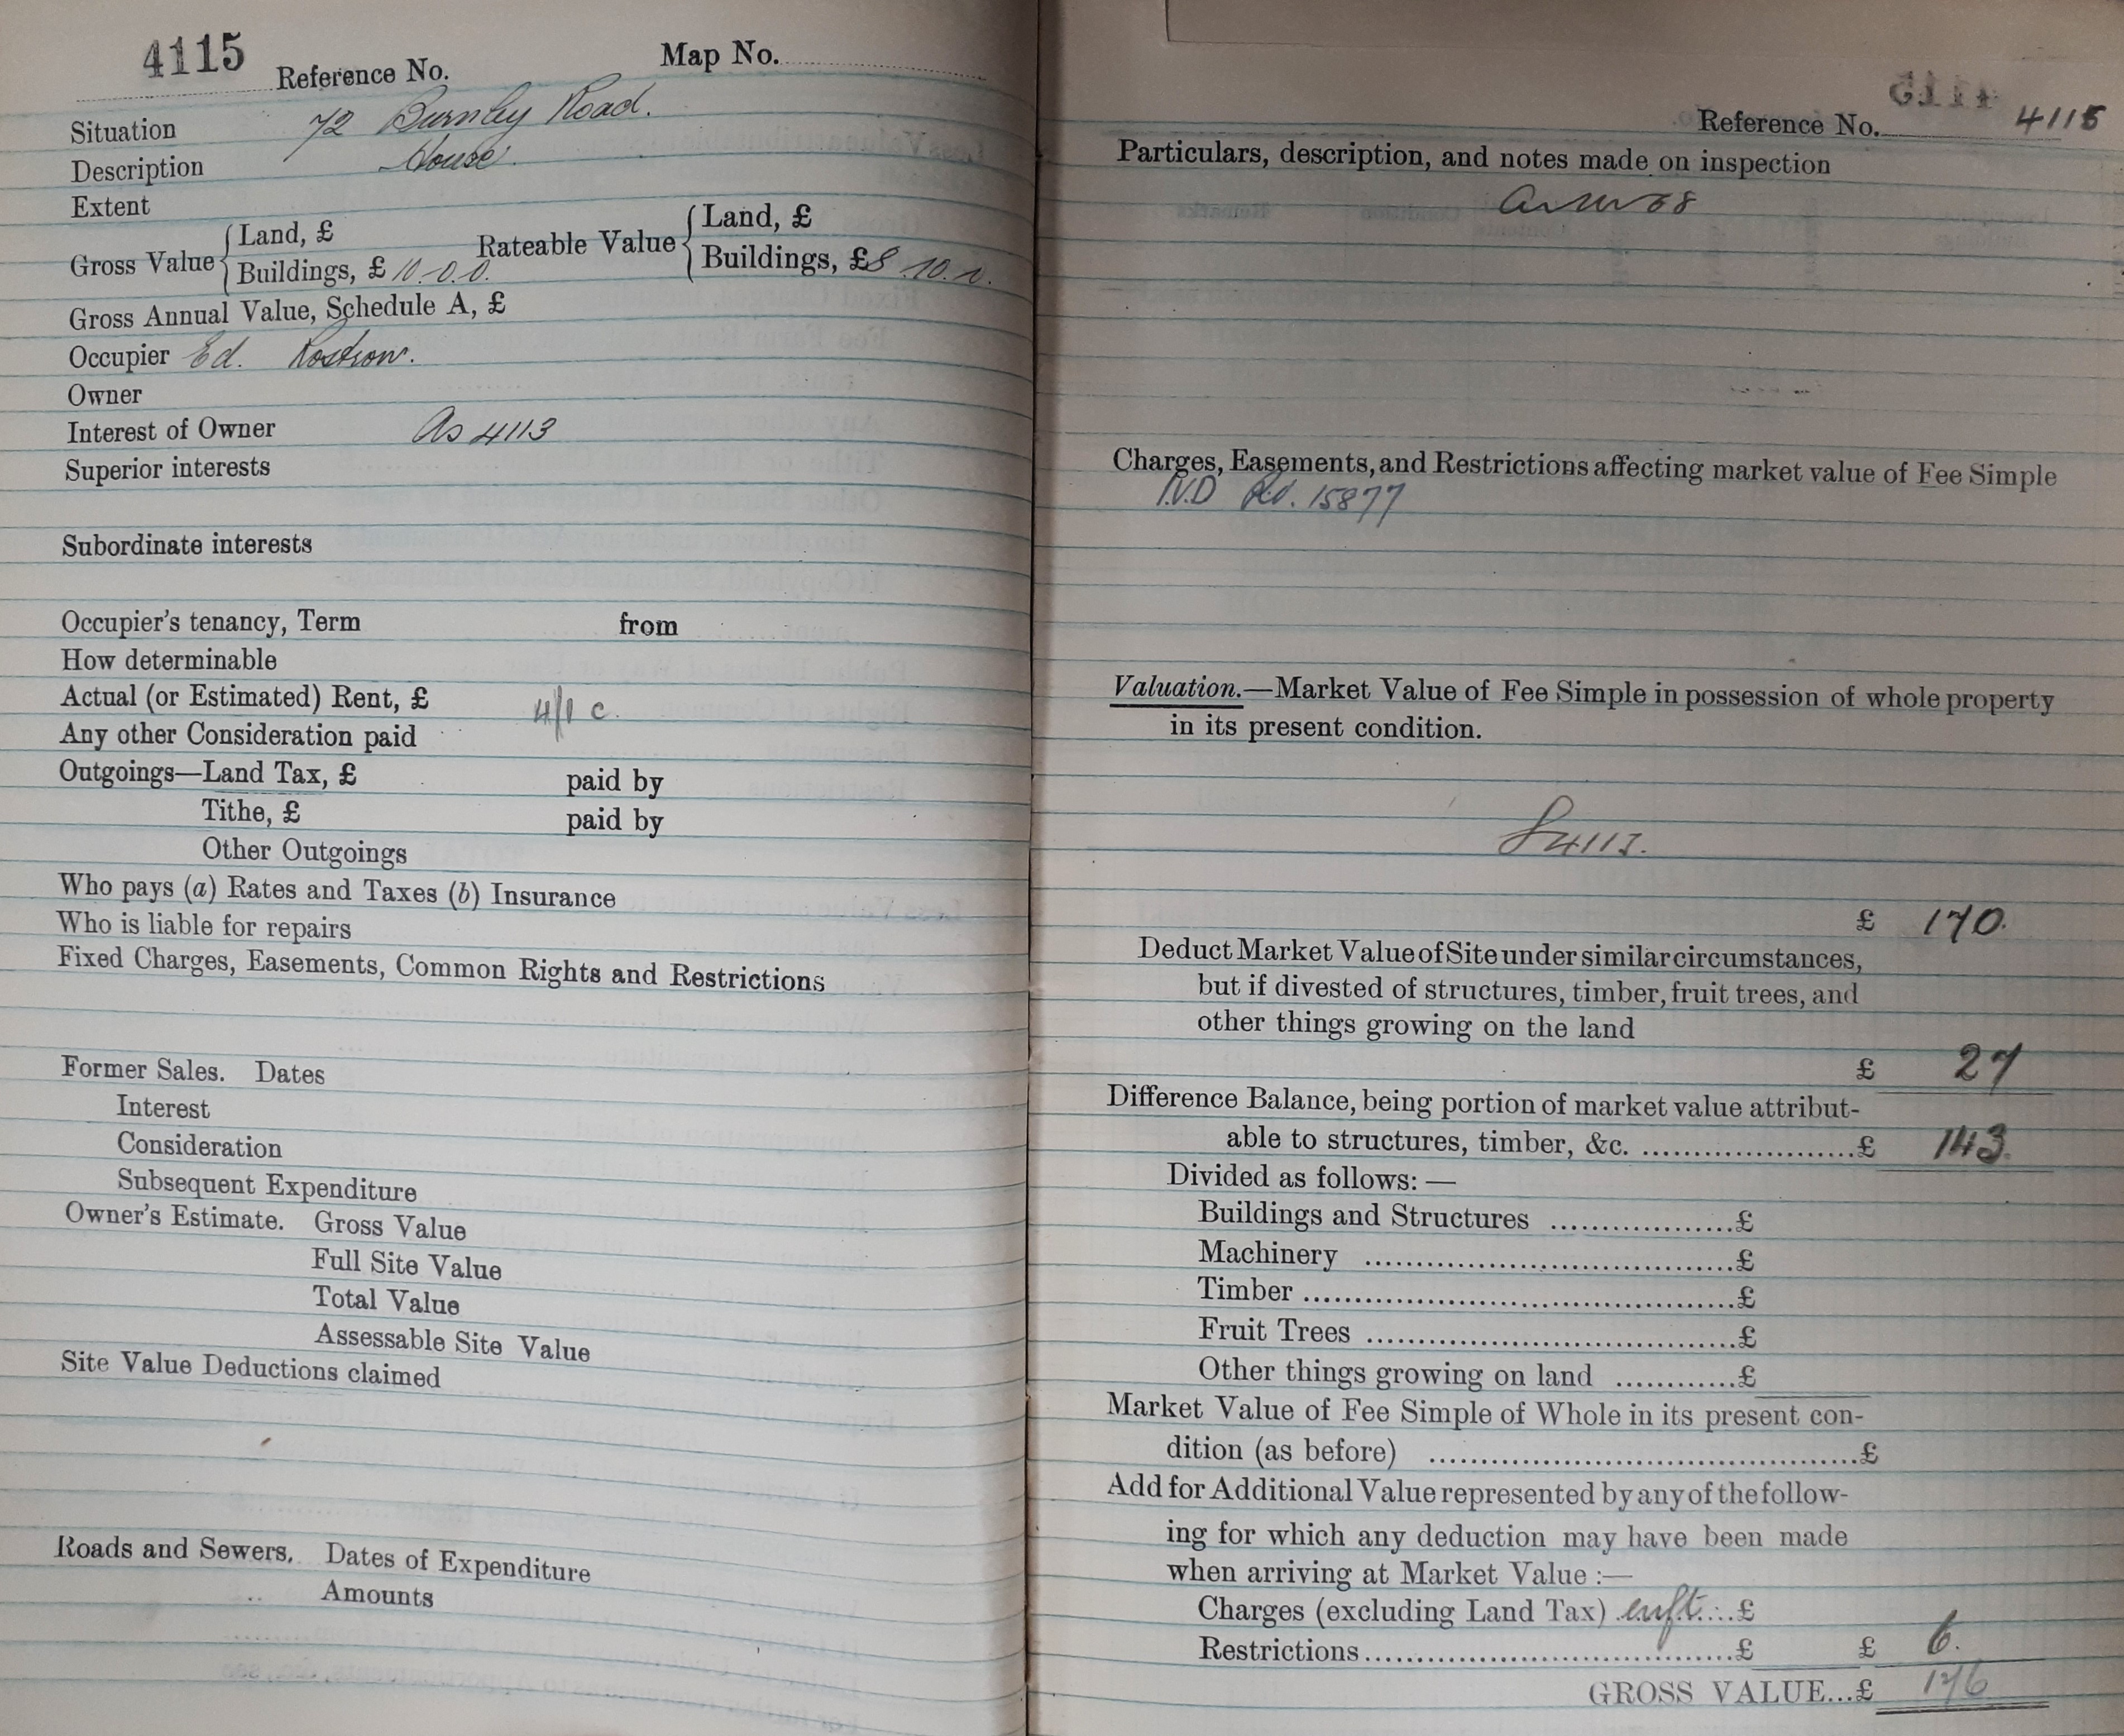 4115 Reference No. Map No.
Situation 72 Burnley Road.
Description House
Extent
Gross Value { Land, £ Rateable Value { Land, £
Buildings, £ 10-0.0. Buildings, £8.10.0.
Gross Annual Value, Schedule A, £
Occupier Ed. Rostron.
Owner
Interest of Owner As 4113
Superior interests
Subordinate interests
Occupier's tenancy, Term from
How determinable
Actual (or Estimated) Rent, £ 4/1 c.
Any other Consideration paid
Outgoings—Land Tax, £ paid by
Tithe, £ paid by
Other Outgoings
Who pays (a) Rates and Taxes (b) Insurance
Who is liable for repairs
Fixed Charges, Easements, Common Rights and Restrictions
Former Sales. Dates
Interest
Consideration
Subsequent Expenditure
Owner's Estimate. Gross Value
Full Site Value
Total Value
Assessable Site Value
Site Value Deductions claimed
Roads and Sewers. Dates of Expenditure
Amounts
Reference No. 4115
Particulars, description, and notes made on inspection
Charges, Easements, and Restrictions affecting market value of Fee Simple
I.V.D 15877
Valuation.—Market Value of Fee Simple in possession of whole property
in its present condition.
4113.
£ 170.
Deduct Market Value of Site under similar circumstances,
but if divested of structures, timber, fruit trees, and
other things growing on the land
£ 27
Difference Balance, being portion of market value attribut-
able to structures, timber, &c. ......................£ 143.
Divided as follows: —
Buildings and Structures ...................£
Machinery .......................................£
Timber .............................................£
Fruit Trees .......................................£
Other things growing on land ............£
Market Value of Fee Simple of Whole in its present con-
dition (as before) ..............................................£
Add for Additional Value represented by any of the follow-
ing for which any deduction may have been made
when arriving at Market Value :—
Charges (excluding Land Tax) ...£
Restrictions.......................................£ £ 6.
GROSS VALUE...£ 176